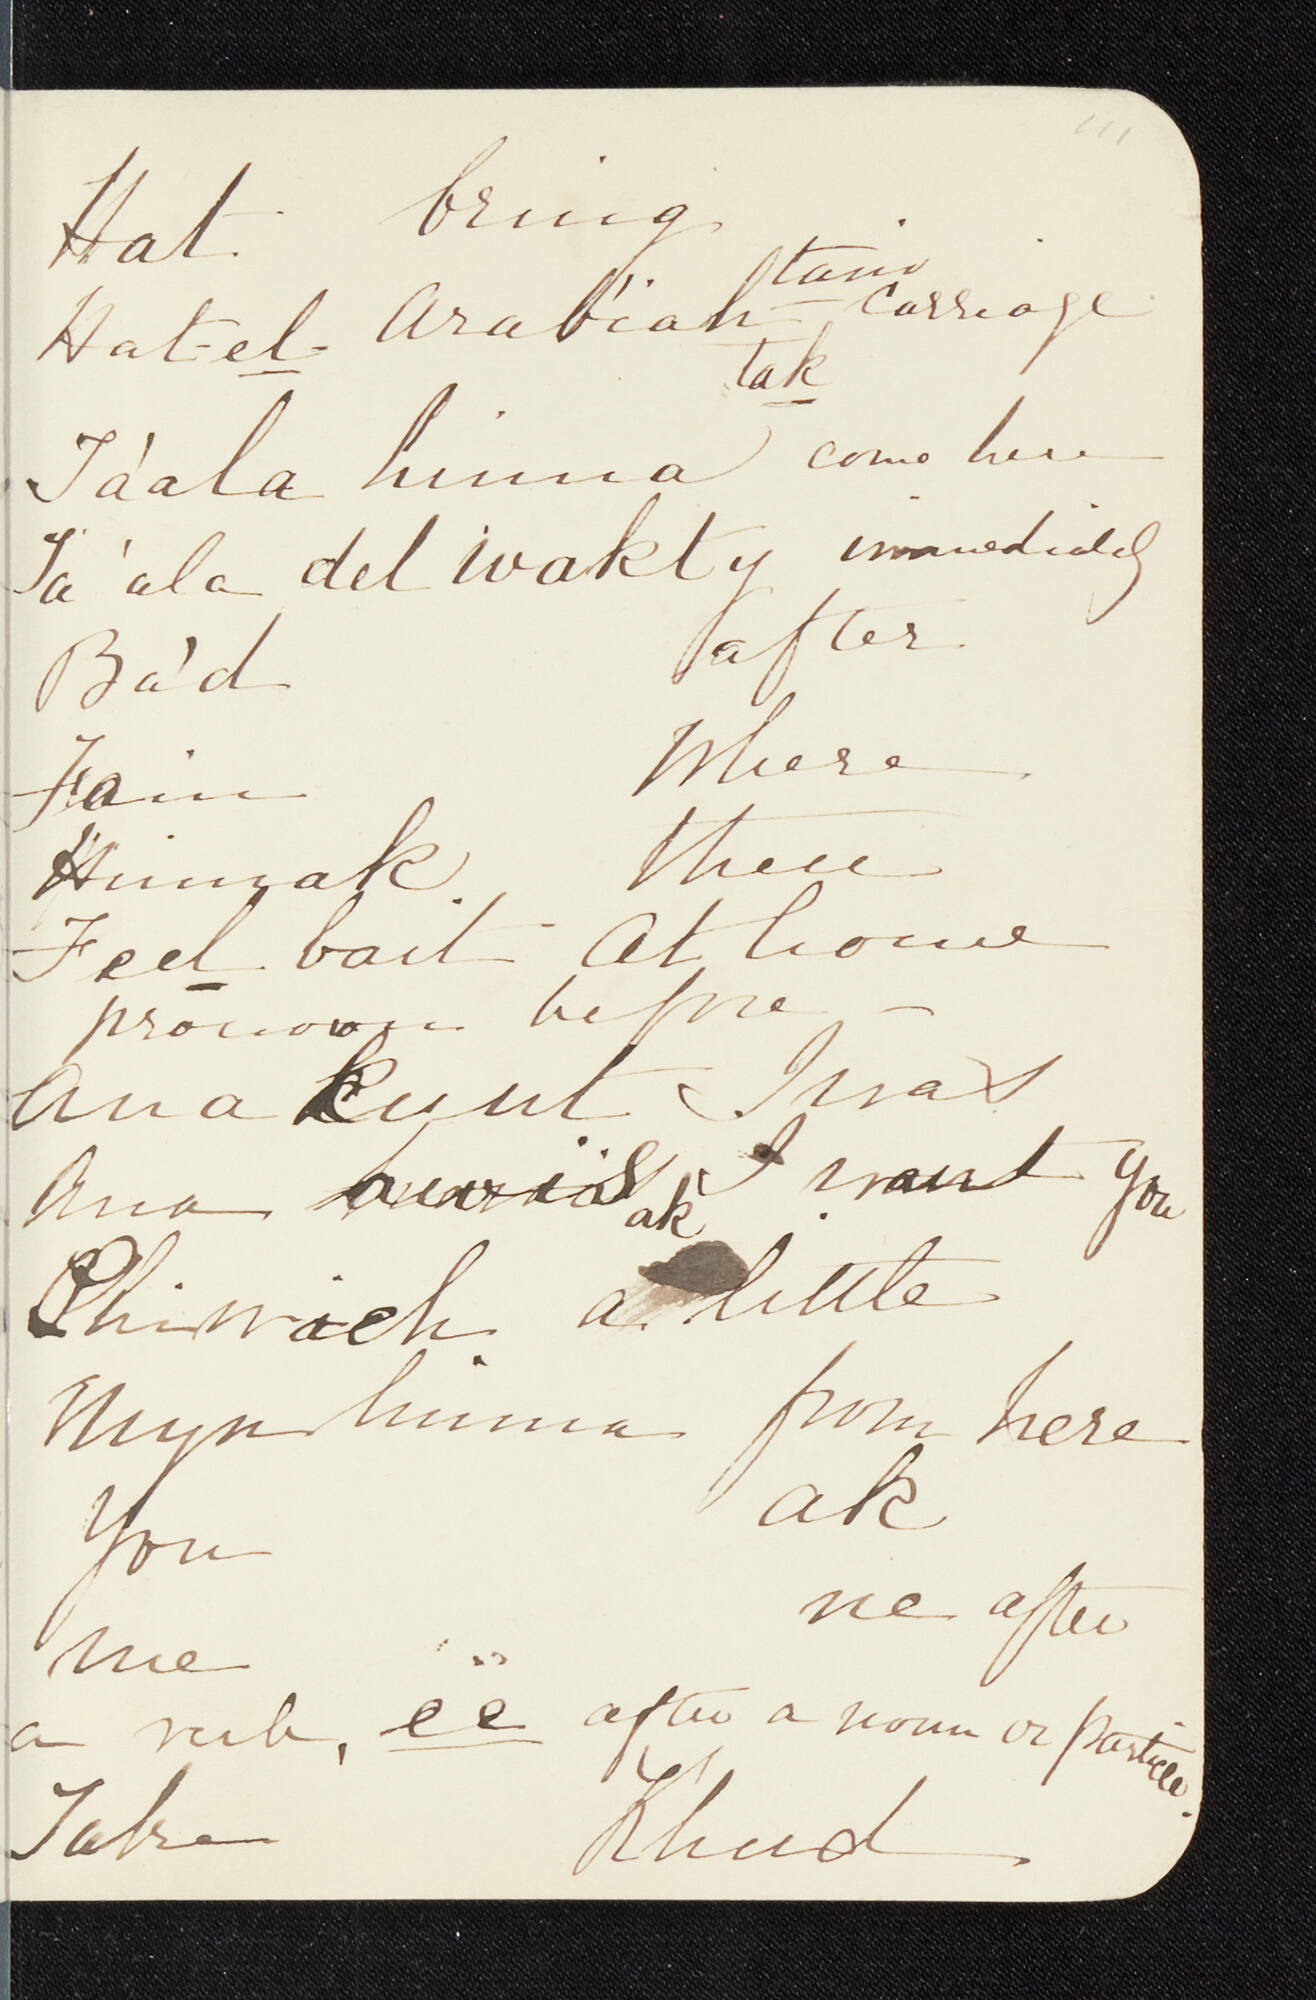 111
Hat bring
tain
Hat-el- Arab'iah- carriage
tak
Tá'ala hinna come here
Ta'ala del wakty immediately
Ba'd after
Fain Where
Hinnak there
Feel bait At home
pronoun before -
Ana Kunt I was
Ana auwïs I want you
ak
Shiwieh a little
Myn hinna from here
You ak
me ne after
a verb, ëë after a noun or particle.
Take Khud